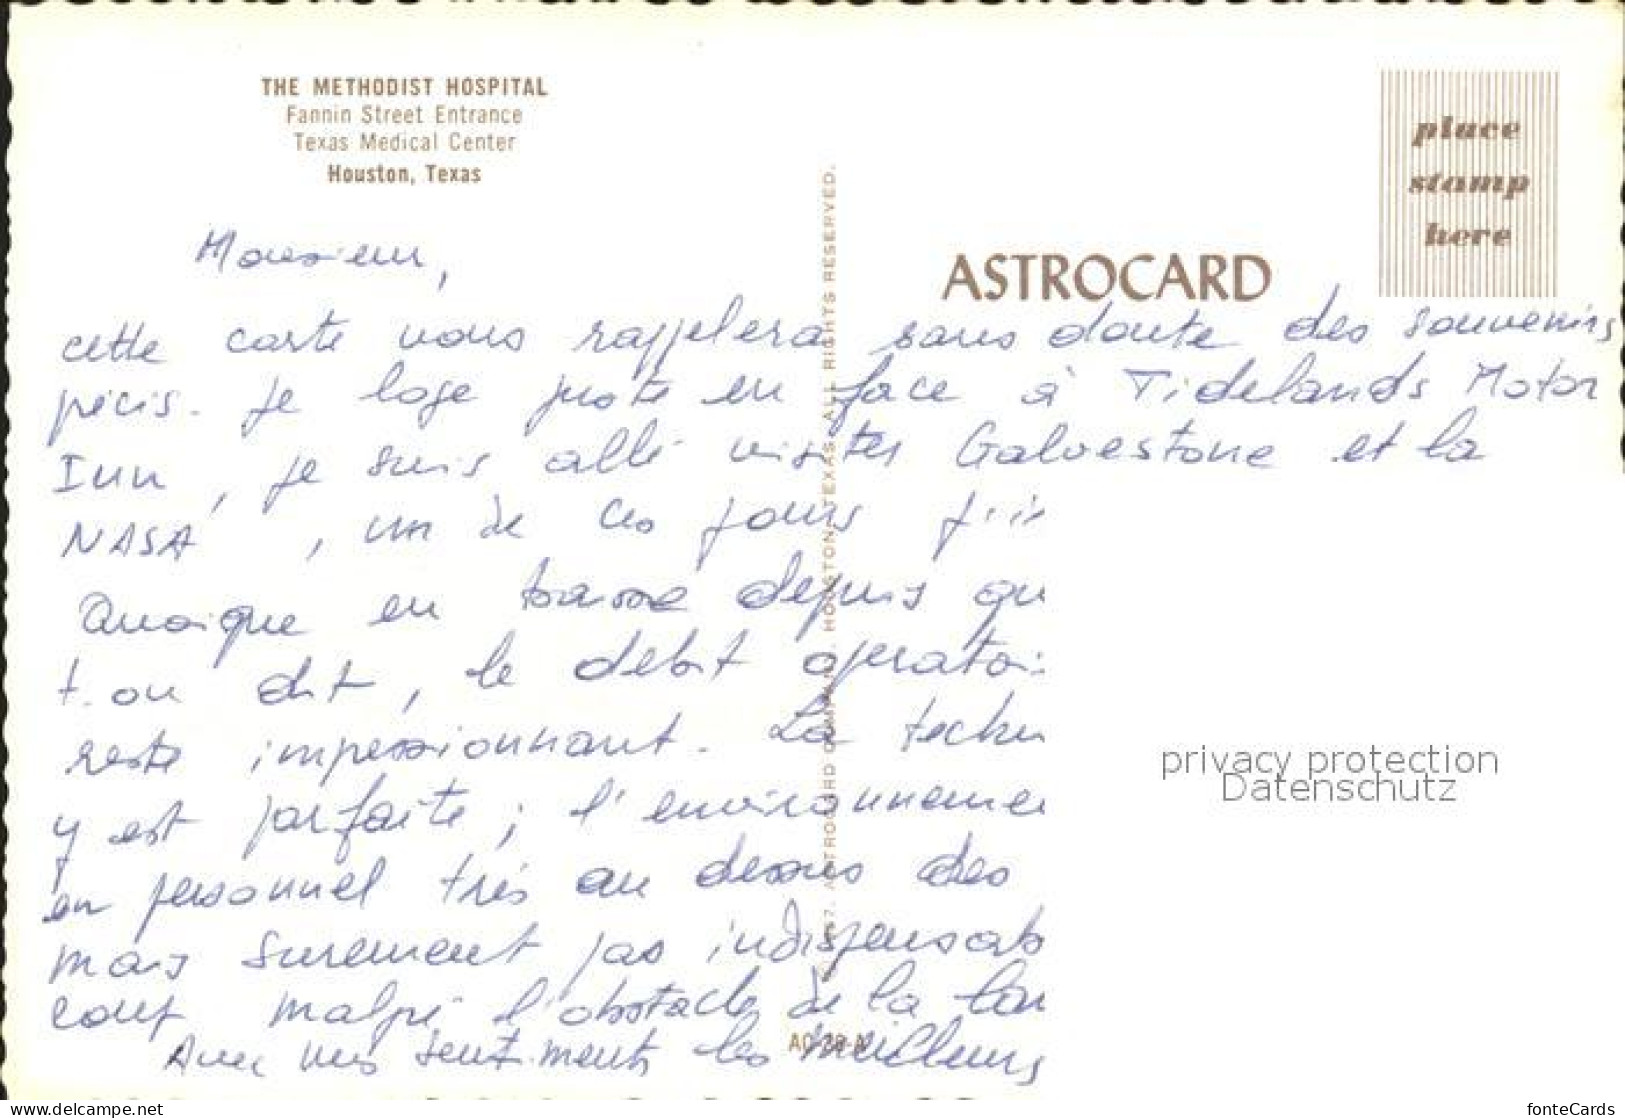 THE METHODIST HOSPITAL
Fannin Street Entrance
Texas Medical Center
Houston, Texas
place
stamp
here
ASTROCARD
Monsieur,
cette carte vous rappelera sans doute des souvenirs
précis. Je loge juste en face à Tidelands Motor
Inn, je suis allé visiter Galvestone et la
NASA, un de ces jours
Quoique en baisse depuis
t-on dit, le debit
reste impressionnant. La
y est parfaite; l'environneme
en personnel très au dessus des
mais surement pas indispensab
coup malgré l'obstacle de la
Avec mes sentiments les meilleurs
ASTROCARD COMPANY, HOUSTON, TEXAS. ALL RIGHTS RESERVED.
privacy protection
Datenschutz
www.delcampe.net
fonteCards